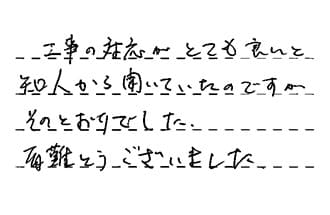 工事の対応がとても良いと
知人から聞いていたのですが
そのとおりでした。
有難とうございました